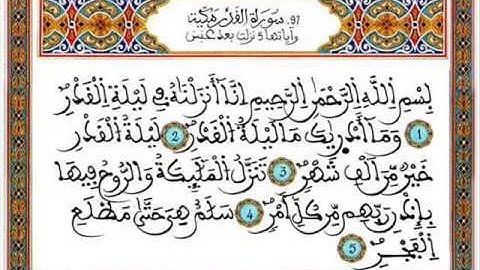 97. سورة القدر مكية
وآياتها 5 نزلت بعد عبس
بِسْمِ اِ۬للَّهِ اِ۬لرَّحْمَٰنِ اِ۬لرَّحِيمِ إِنَّآ أَنزَلْنَٰهُ فِے لَيْلَةِ اِ۬لْقَدْرِ
1 وَمَآ أَدْر۪يٰكَ مَا لَيْلَةُ اُ۬لْقَدْرِ 2 لَيْلَةُ اُ۬لْقَدْرِ
خَيْرٌ مِّنْ أَلْفِ شَهْرٍ 3 تَنَزَّلُ اُ۬لْمَلَٰٓئِكَةُ وَالرُّوحُ فِيهَا
بِإِذْنِ رَبِّهِم مِّن كُلِّ أَمْرٍ 4 سَلَٰمٌ هِيَ حَتَّىٰ مَطْلَعِ
اِ۬لْفَجْرِ 5